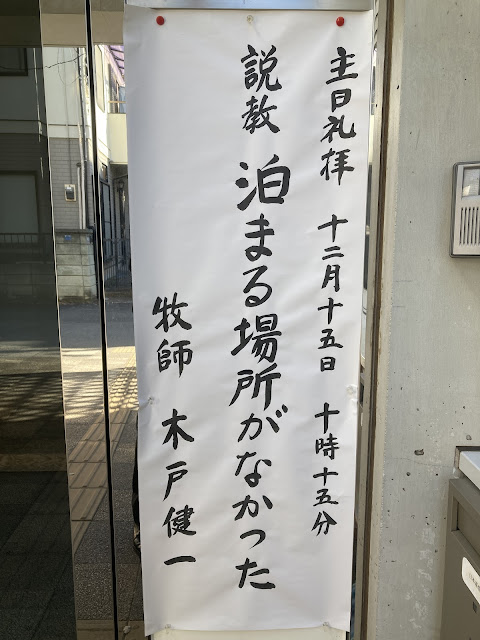 主日礼拝 十二月十五日 十時十五分
説教 泊まる場所がなかった
牧師 木戸健一